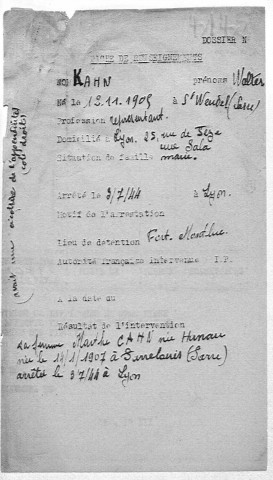 DOSSIER N
FICHE DE RENSEIGNEMENTS
NOM KAHN prénoms Walter
Né le 12.11.1905 à St Wendel (Sarre)
Profession représentant.
Domicilié à Lyon. 25, rue de
rue Sala
Situation de famille marié.
Arrêté le 3/7/44 à Lyon.
Motif de l'arrestation
Lieu de detention Fort Montluc.
Autorité française intervenue I.P.
A la date du
Résultat de l'intervention
Sa femme Marthe CAHN née
née le 14/1/1907 à Sarrelouis (Sarre)
arrêtée le 3/7/44 à Lyon
avait une cicatrice de l'appendicite
(côté droit)